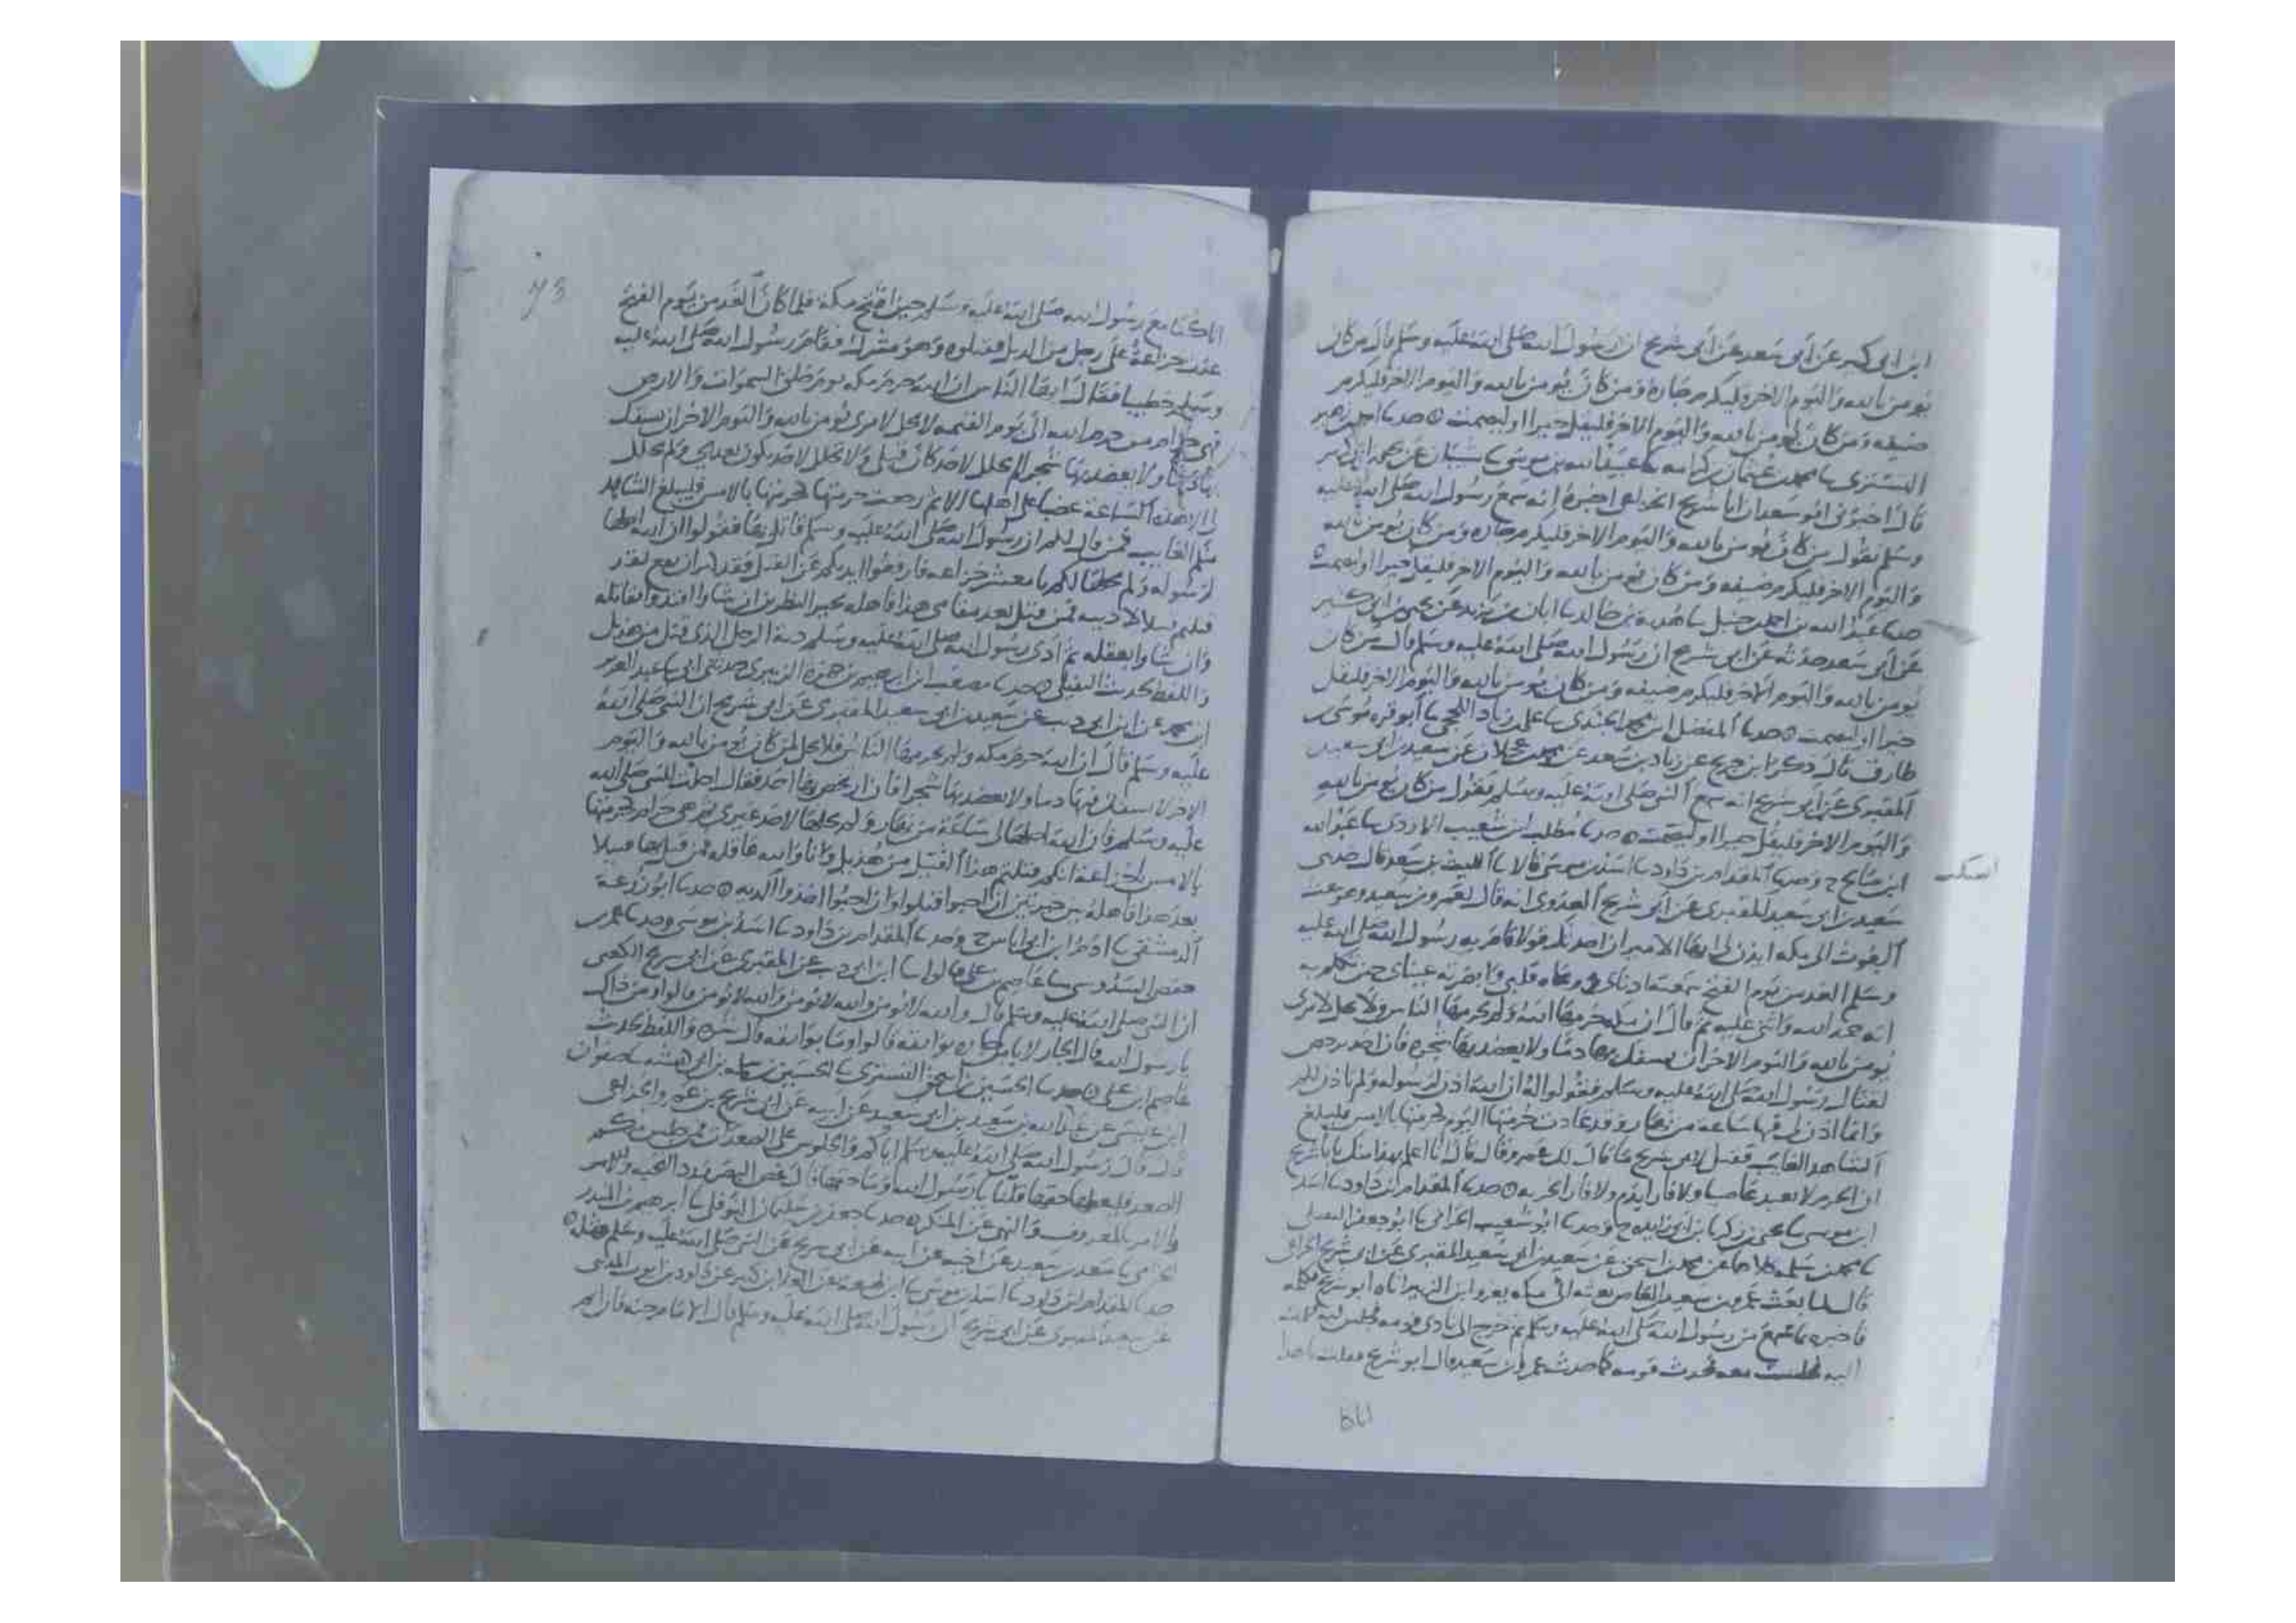 ابن ابى كثير عن ابى سعيد عن ابى شريح ان رسول الله صلى الله عليه وسلم قال من كان
يومن بالله واليوم الاخر فليكرم جاره ومن كان يومن بالله واليوم الاخر فليكرم
ضيفه ومن كان يومن بالله واليوم الاخر فليقل خيرا او ليصمت حدثنا احمد بن زهير
التسترى نا محمد بن عثمان بن كرامه نا عبيد الله بن موسى نا شيبان عن يحيى بن ابى كثير
قال اخبرنى ابو سعيد ان ابا شريح الخزاعى اخبره انه سمع رسول الله صلى الله عليه
وسلم يقول من كان يومن بالله واليوم الاخر فليكرم جاره ومن كان يومن بالله
واليوم الاخر فليكرم ضيفه ومن كان يومن بالله واليوم الاخر فليقل خيرا او ليصمت
حدثنا عبد الله بن احمد بن حنبل نا هدبة بن خالد نا ابان بن يزيد عن يحيى بن ابى كثير
عن ابى سعيد حدثه عن ابى شريح ان رسول الله صلى الله عليه وسلم قال من كان
يومن بالله واليوم الاخر فليكرم ضيفه ومن كان يومن بالله واليوم الاخر فليقل
خيرا او ليصمت حدثنا المفضل بن محمد الجندى نا على بن زياد اللحجى نا ابو قره موسى بن
طارق قال ذكر ابن جريج عن زياد بن سعد عن محمد بن عجلان عن سعيد بن ابى سعيد
المقبرى عن ابى شريح انه سمع النبى صلى الله عليه وسلم يقول من كان يومن بالله
واليوم الاخر فليقل خيرا او ليصمت حدثنا مطلب بن شعيب الازدى نا عبد الله
ابن صالح ح وحدثنا المقدام بن داود نا اسد بن موسى قالا نا الليث بن سعد قال حدثنى
سعيد بن ابى سعيد المقبرى عن ابى شريح العدوى انه قال لعمرو بن سعيد وهو يبعث
البعوث الى مكه ايذن لى ايها الامير ان احدثك قولا قام به رسول الله صلى الله عليه
وسلم الغد من يوم الفتح سمعته اذناى ووعاه قلبى وابصرته عيناى حين تكلم به
انه حمد الله واثنى عليه ثم قال ان مكه حرمها الله ولم يحرمها الناس ولا يحل لامرى
يومن بالله واليوم الاخر ان يسفك بها دما ولا يعضد بها شجره فان احد ترخص
لقتال رسول الله صلى الله عليه وسلم فقولوا له ان الله اذن لرسوله ولم ياذن لكم
وانما اذن لى فيها ساعة من نهار وقد عادت حرمتها اليوم كحرمتها بالامس فليبلغ
الشاهد الغايب فقيل لابى شريح ما قال لك عمرو قال قال انا اعلم بهذا منك يابا شريح
ان الحرم لا يعيذ عاصيا ولا فارا بدم ولا فارا بخربه حدثنا المقدام بن داود نا اسد
ابن موسى نا يحيى بن زكريا بن ابى زايده ح وحدثنا ابو شعيب الحرانى نا ابو جعفر النفيلى
نا محمد بن سلمه كلاهما عن محمد بن اسحق عن سعيد بن ابى سعيد المقبرى عن ابى شريح الخزاعى
قال لما بعث عمرو بن سعيد بن العاص بعثه الى مكه يغزو ابن الزبير اتاه ابو شريح فكلمه
فاخبره بما سمع من رسول الله صلى الله عليه وسلم ثم خرج الى نادى قومه فجلس فيه فقمت
اليه فجلست معه فحدث قومه كما حدث عمرو بن سعيد قال ابو شريح فقلت يا هذا
انا كنا مع رسول الله صلى الله عليه وسلم حين افتتح مكة فلما كان الغد من يوم الفتح
عدت خزاعة على رجل من هذيل فقتلوه وهو مشرك فقام رسول الله صلى الله عليه
وسلم خطيبا فقال ايها الناس ان الله حرم مكه يوم خلق السموات والارض
فهى حرام من حرم الله الى يوم القيمه لا يحل لامرى يومن بالله واليوم الاخر ان يسفك
بها دما ولا يعضد بها شجرا لم تحلل لاحد كان قبلى ولا تحلل لاحد يكون بعدى ولم تحلل
لى الا هذه الساعة غضبا على اهلها الا ثم رجعت حرمتها كحرمتها بالامس فليبلغ الشاهد
منكم الغايب فمن قال لكم ان رسول الله صلى الله عليه وسلم قاتل بها فقولوا ان الله احلها
لرسوله ولم يحلها لكم يا معشر خزاعه فارفعوا ايديكم عن القتل فقد كثر ان يقع لقد
قتلتم قتيلا لادينه فمن قتل بعد مقامى هذا فاهله بخير النظرين ان شاوا فدم قاتله
وان شاوا فعقله ثم ادى رسول الله صلى الله عليه وسلم دية الرجل الذى قتل من هذيل
واللفظ لحديث النفيلى حدثنا مصعب بن ابرهيم بن حمزة الزبيرى حدثنى ابى نا عبد العزيز
ابن محمد عن ابن ابى ذيب عن سعيد بن ابى سعيد المقبرى عن ابى شريح ان النبى صلى الله
عليه وسلم قال ان الله حرم مكه ولم يحرمها الناس فلا يحل لمن كان يومن بالله واليوم
الاخر لا يسفك فيها دما ولا يعضد بها شجرا فان ارتخص بها احد فقال احلت للنبى صلى الله
عليه وسلم فان الله احلها لى ساعة من نهار ولم يحلها لاحد غيرى ثم هى حرام كحرمتها
بالامس يا خزاعة انكم قتلتم هذا القتيل من هذيل وانا والله عاقله فمن قتل بها قتيلا
بعد هذا فاهله بين خيرتين ان احبوا قتلوا وان احبوا اخذوا الديه حدثنا ابو زرعة
الدمشقى نا ادم بن ابى اياس ح وحدثنا المقدام بن داود نا اسد بن موسى وحدثنا عمر بن
حفص السدوسى نا عاصم بن على قالوا نا ابن ابى ذيب عن المقبرى عن ابى شريح الكعبى
ان النبى صلى الله عليه وسلم قال والله لا يومن والله لا يومن والله لا يومن قالوا ومن ذاك
يا رسول الله قال الجار لا يامن جاره بوايقه قالوا وما بوايقه قال شره واللفظ لحديث
عاصم بن على حدثنا الحسين بن اسحق التسترى نا الحسين بن
ابن عيسى عن عبد الله بن سعيد بن ابى سعيد عن ابيه عن ابى شريح بن عمرو الخزاعى
قال قال رسول الله صلى الله عليه وسلم اياكم والجلوس على الصعدات فمن جلس منكم
الصعد فليعطها حقها قلنا يا رسول الله وما حقها قال غض البصر ورد التحيه
والامر بالمعروف والنهى عن المنكر حدثنا جعفر بن سليمان النوفلى نا ابرهيم بن المنذر
الحزامى نا سعد بن سعيد عن اخيه عن ابيه عن ابى شريح عن النبى صلى الله عليه وسلم مثله
حدثنا المقدام بن داود نا اسد بن موسى نا ابن لهيعة عن داود بن ايوب المدنى
عن سعيد المقبرى عن ابى شريح ان رسول الله صلى الله عليه وسلم قال الامام جنة فان اتم
73